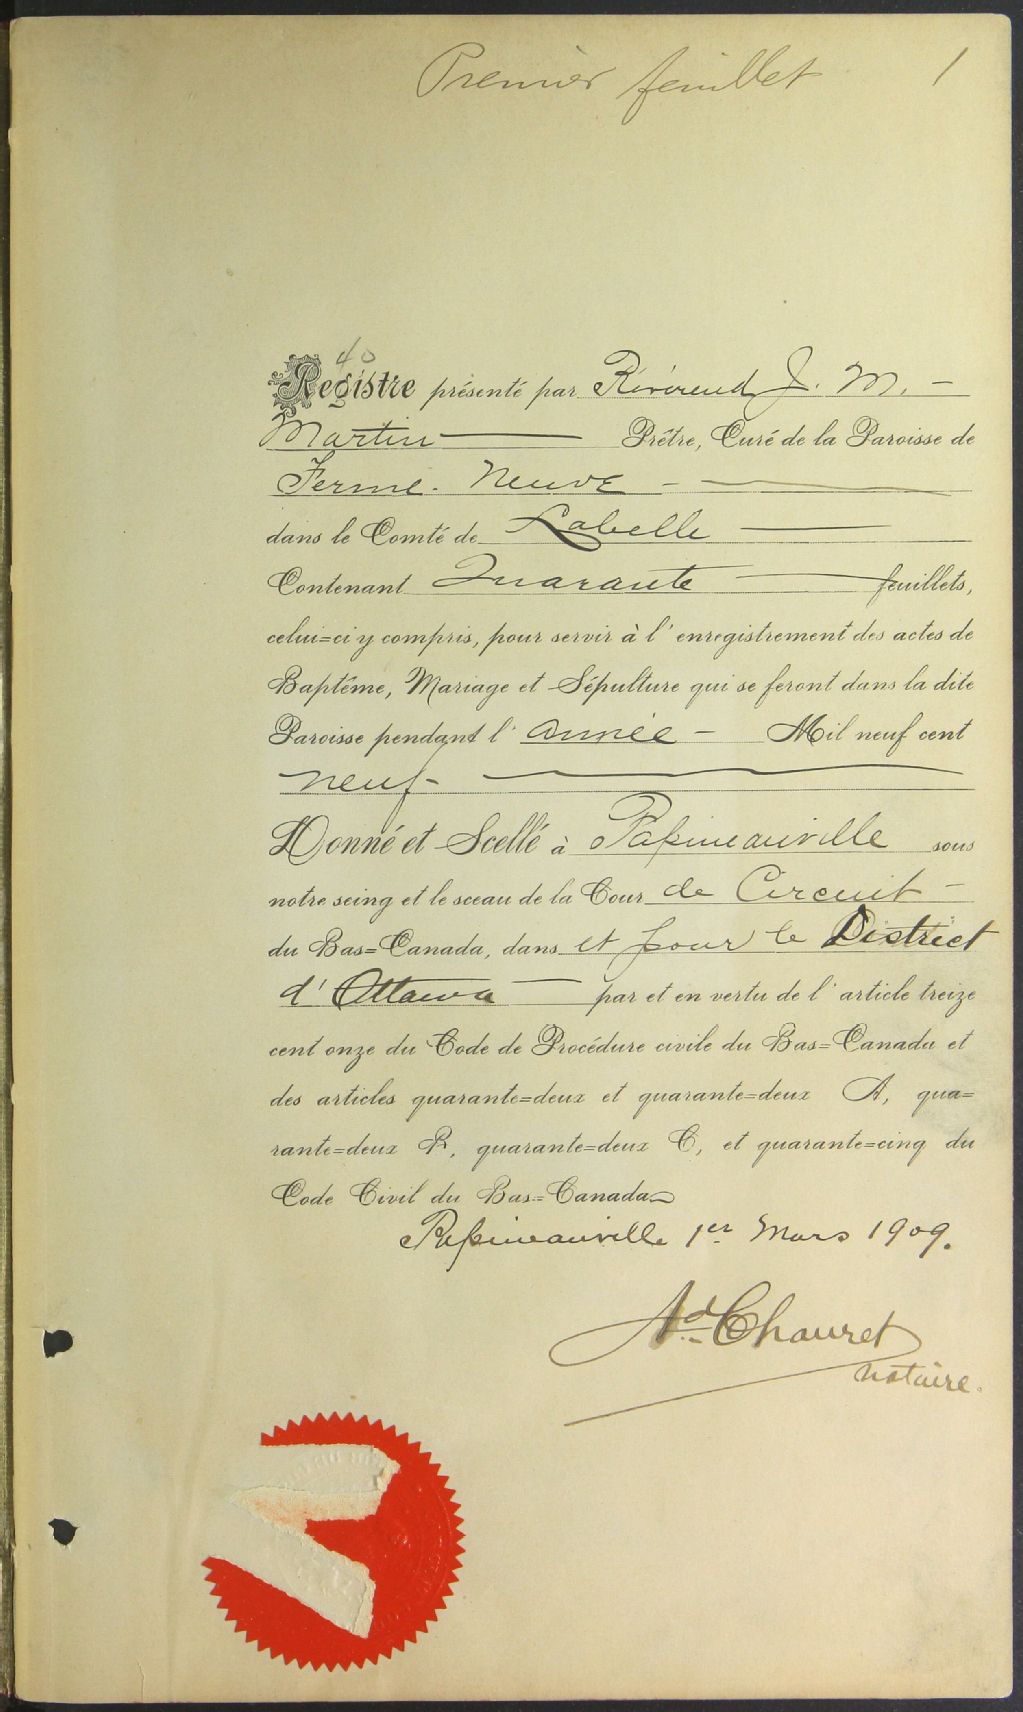 Premier feuillet 1
40
Registre présenté par Révérend J. M. –
Martin — Prêtre, Curé de la Paroisse de
Ferme-Neuve –
dans le Comté de Labelle —
Contenant Quarante — feuillets,
celui=ci y compris, pour servir à l'enregistrement des actes de
Baptême, Mariage et Sépulture qui se feront dans la dite
Paroisse pendant l'année – Mil neuf cent
neuf –
Donné et Scellé à Papineauville sous
notre seing et le sceau de la Cour de Circuit –
du Bas=Canada, dans et pour le District
d'Ottawa — par et en vertu de l'article treize
cent onze du Code de Procédure civile du Bas=Canada et
des articles quarante=deux et quarante=deux A, qua=
rante=deux B, quarante=deux C, et quarante=cinq du
Code Civil du Bas=Canada
Papineauville 1er Mars 1909.
Ad. Chauret
notaire.